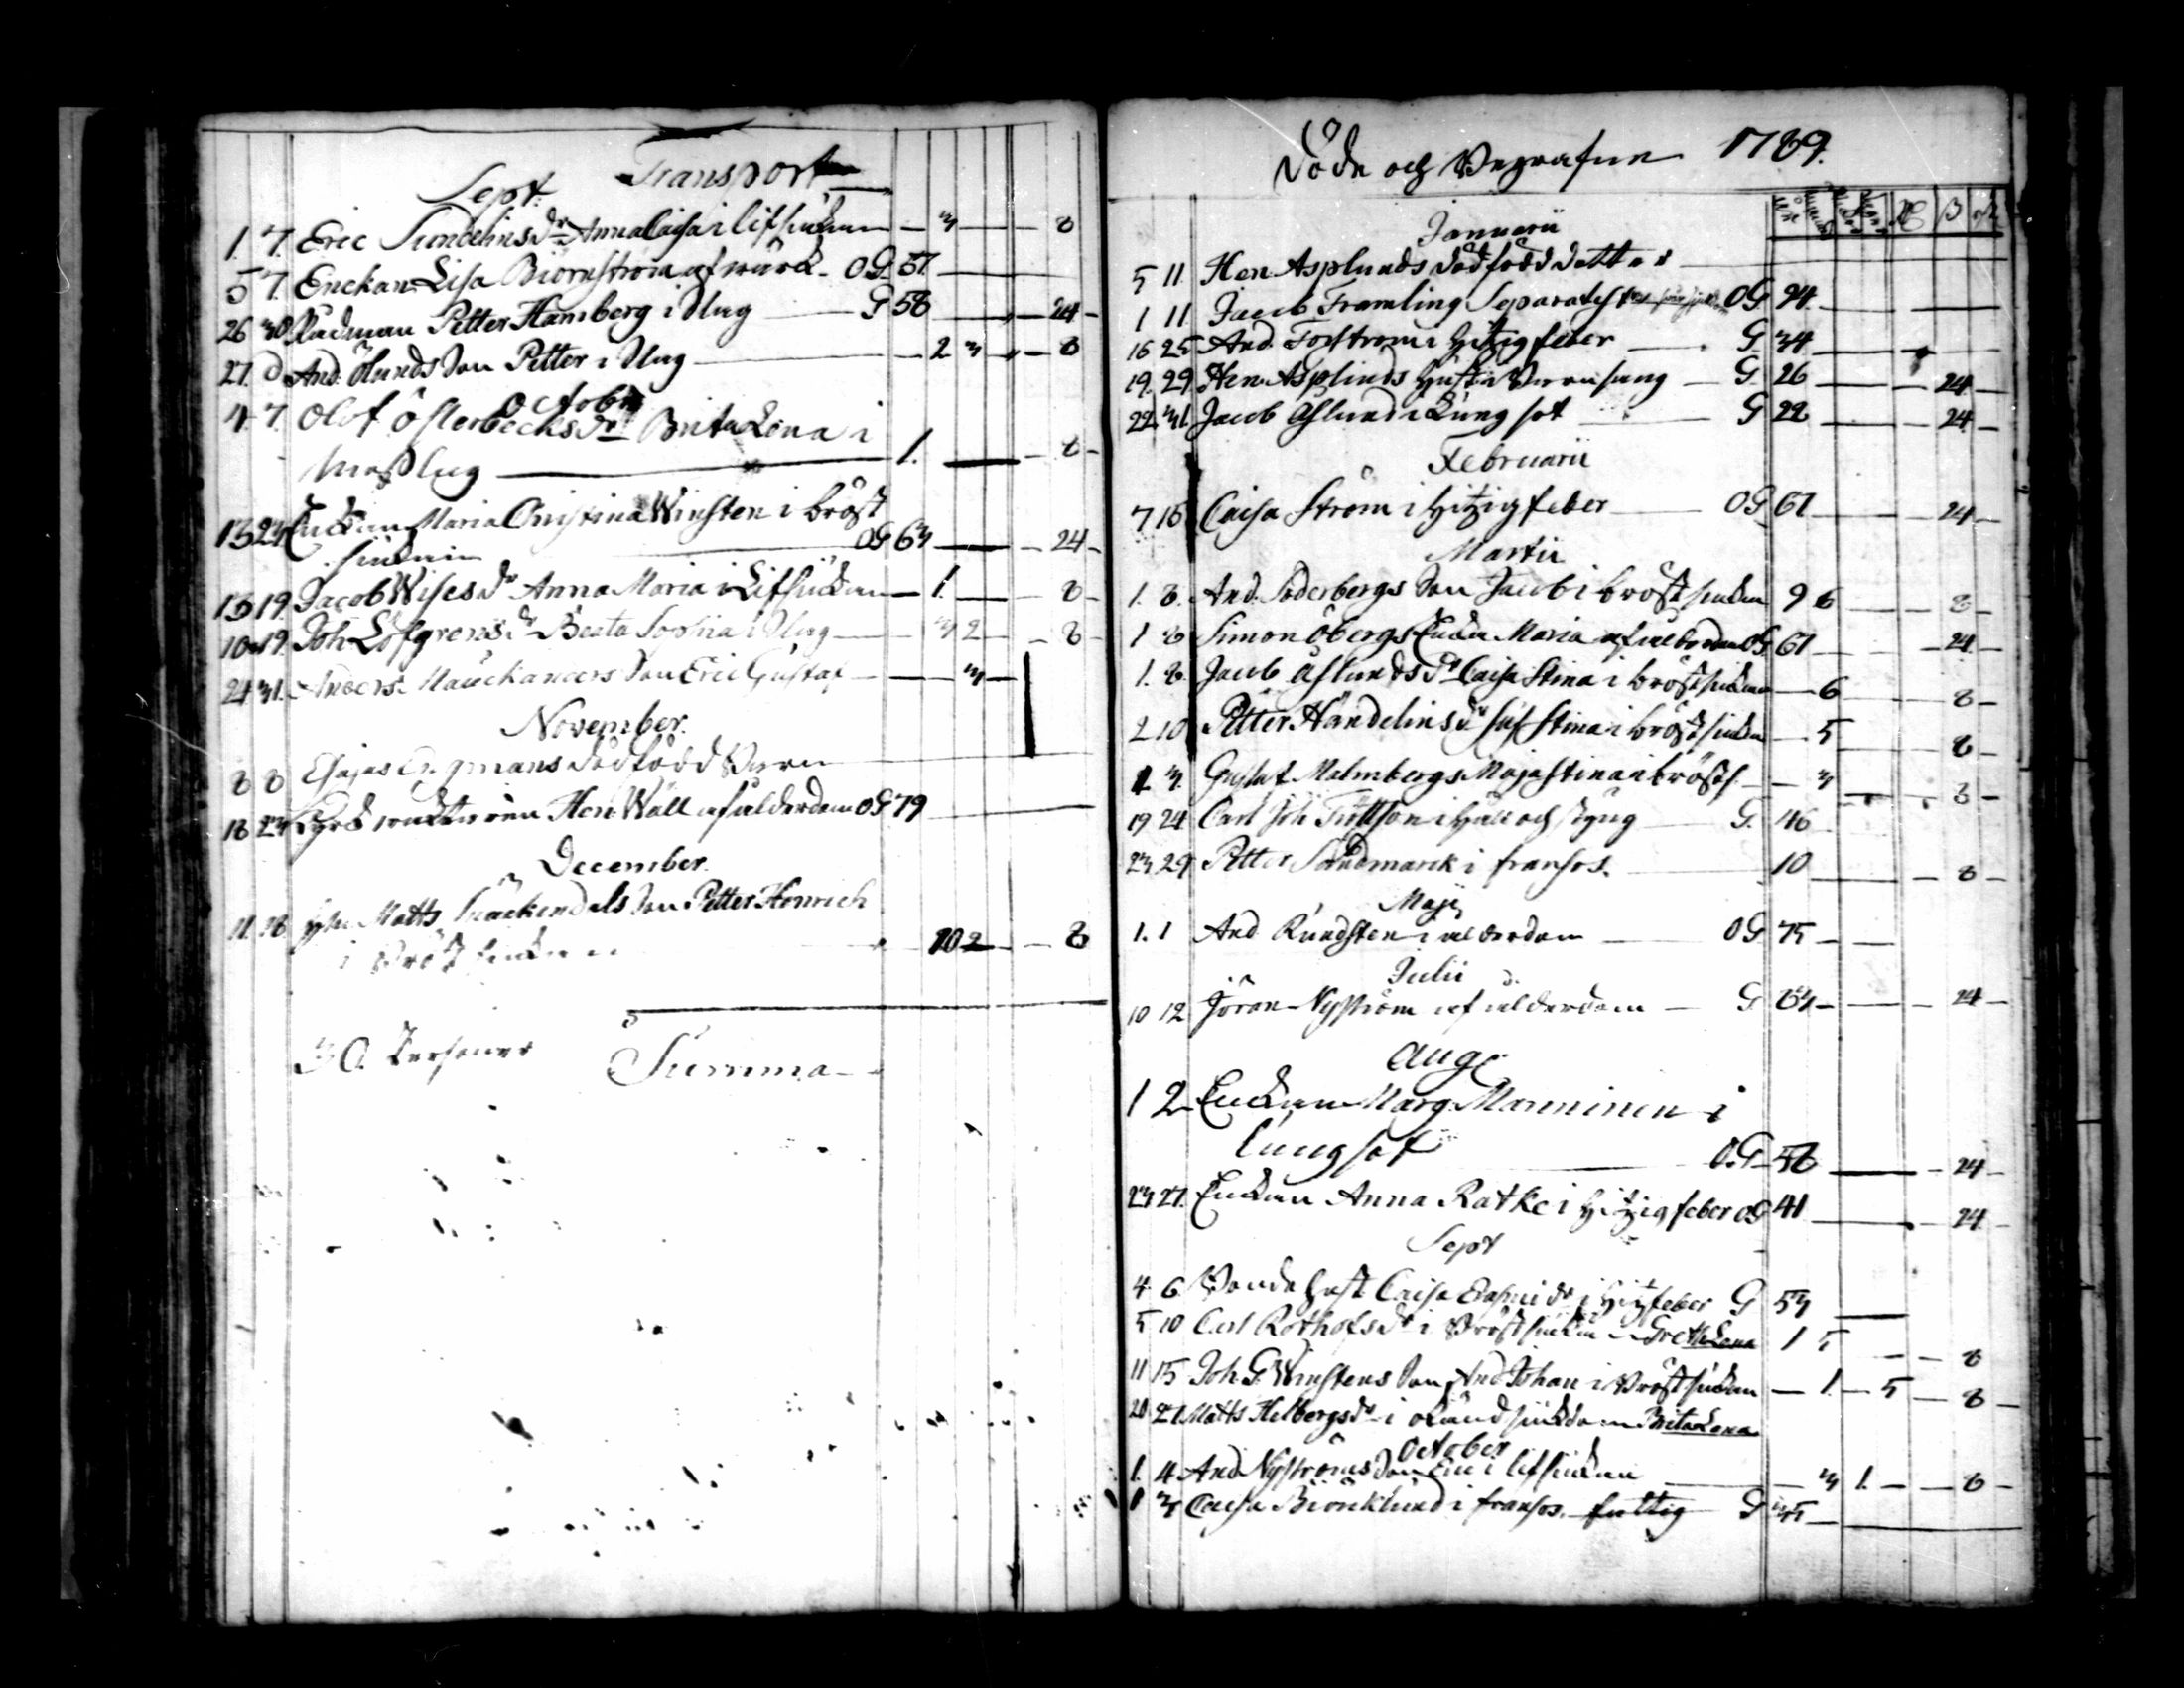 Transport
Sept.
1 7. Eric Sundelins dr Anna Caisa i lifsiukan — 3 — 8
5 7. Enckan Lisa Biörnström af wärck. OG. 57.
26 30 Rådman Petter Hamberg i Slag — G 58 — 24 –
27. D And. Ölunds Son Petter i Slag — 2 3 — 8
October
4 7 Olof Österbecks dr Brita Lena i
Mäßling — 1. — 8 –
13 23 Enckan Maria Christina Winsten i bröst
siukan — OG 63 — 24 –
13 19. Jacob Wises dr Anna Maria i Lifsiukan — 1. — 8 –
10 19. Joh. Löfgrens dr Beata Sophia i Slag — 3 2 — 8
24 31. Anders Son Eric Gustaf — 3 –
November.
8 8 Esajas Engmans dödfödd Barn
18 23 Hen. Wäll af ålderdom OG 79
December.
11. 18. Matts Son Petter Henrich
i Bröst siukan — 10 2 — 8
30. Personer Summa –
Döde och Begrafne 1789.
Januarii
5 11 Hen. Asplunds dödfödd dotter
1 11 Jacob Framling Separatist OG. 94.
16 25 And. Forström i Hitzig feber — G. 34
19. 29 Hen. Asplunds Hustru Barnsäng — G. 26 — 24 –
22. 31. Jacob Åslund i Lungsot — G 22 — 24 –
Februarii
7 16 Caisa Ström i Hitzig feber — OG 67 — 24 –
Martii
1. 8. And. Söderbergs Son Jacob i bröstsiukan 9 6 — 8 –
1 8 Simon Öbergs Encka Maria af ålderdom OG 67 — 24 –
1. 8. Jacob Åslunds dr Caisa Stina i bröstsiukan — 6 — 8 –
2 10 Petter Handelins dr Stina i bröstsiukan — 5 — 8 –
1 3. Gustaf Malmbergs Maja Stina i brösts. — 3 — 8 –
19 24 Carl Joh. i Håll och Styng — G. 46
23 29 Petter Sandmarck i fransos. — 10 — 8 –
Maji
1. 1 And. Rundsten i ålderdom — OG 75 –
Julii
10 12 Jöran Nyström af ålderdom — G 83 – — 24 –
Aug.
1 2 Enckan Marg. Manninen i
lungsot — O.G. 58 — 24 –
23 27. Enckan Anna Ratke i Hitzig feber OG 41 — 24 –
Sept
4 6 Caisa i Hitzfeber G 53
5 10 Carl Rothofs dr i Bröstsiukan Greta Lena 1 5 — 8
11 15 Joh. G. Winstens Son And. Johan i Bröstsiukan — 1. — 5 — 8 –
20 27. Matts Helbergs dr i okänd siukdom Brita Lena
October
1. 4 And. Nyströms Son Eric i lifsiukan — 3 1. — 8 –
1 3 Caisa Biörcklund i fransos. fattig G 35 –